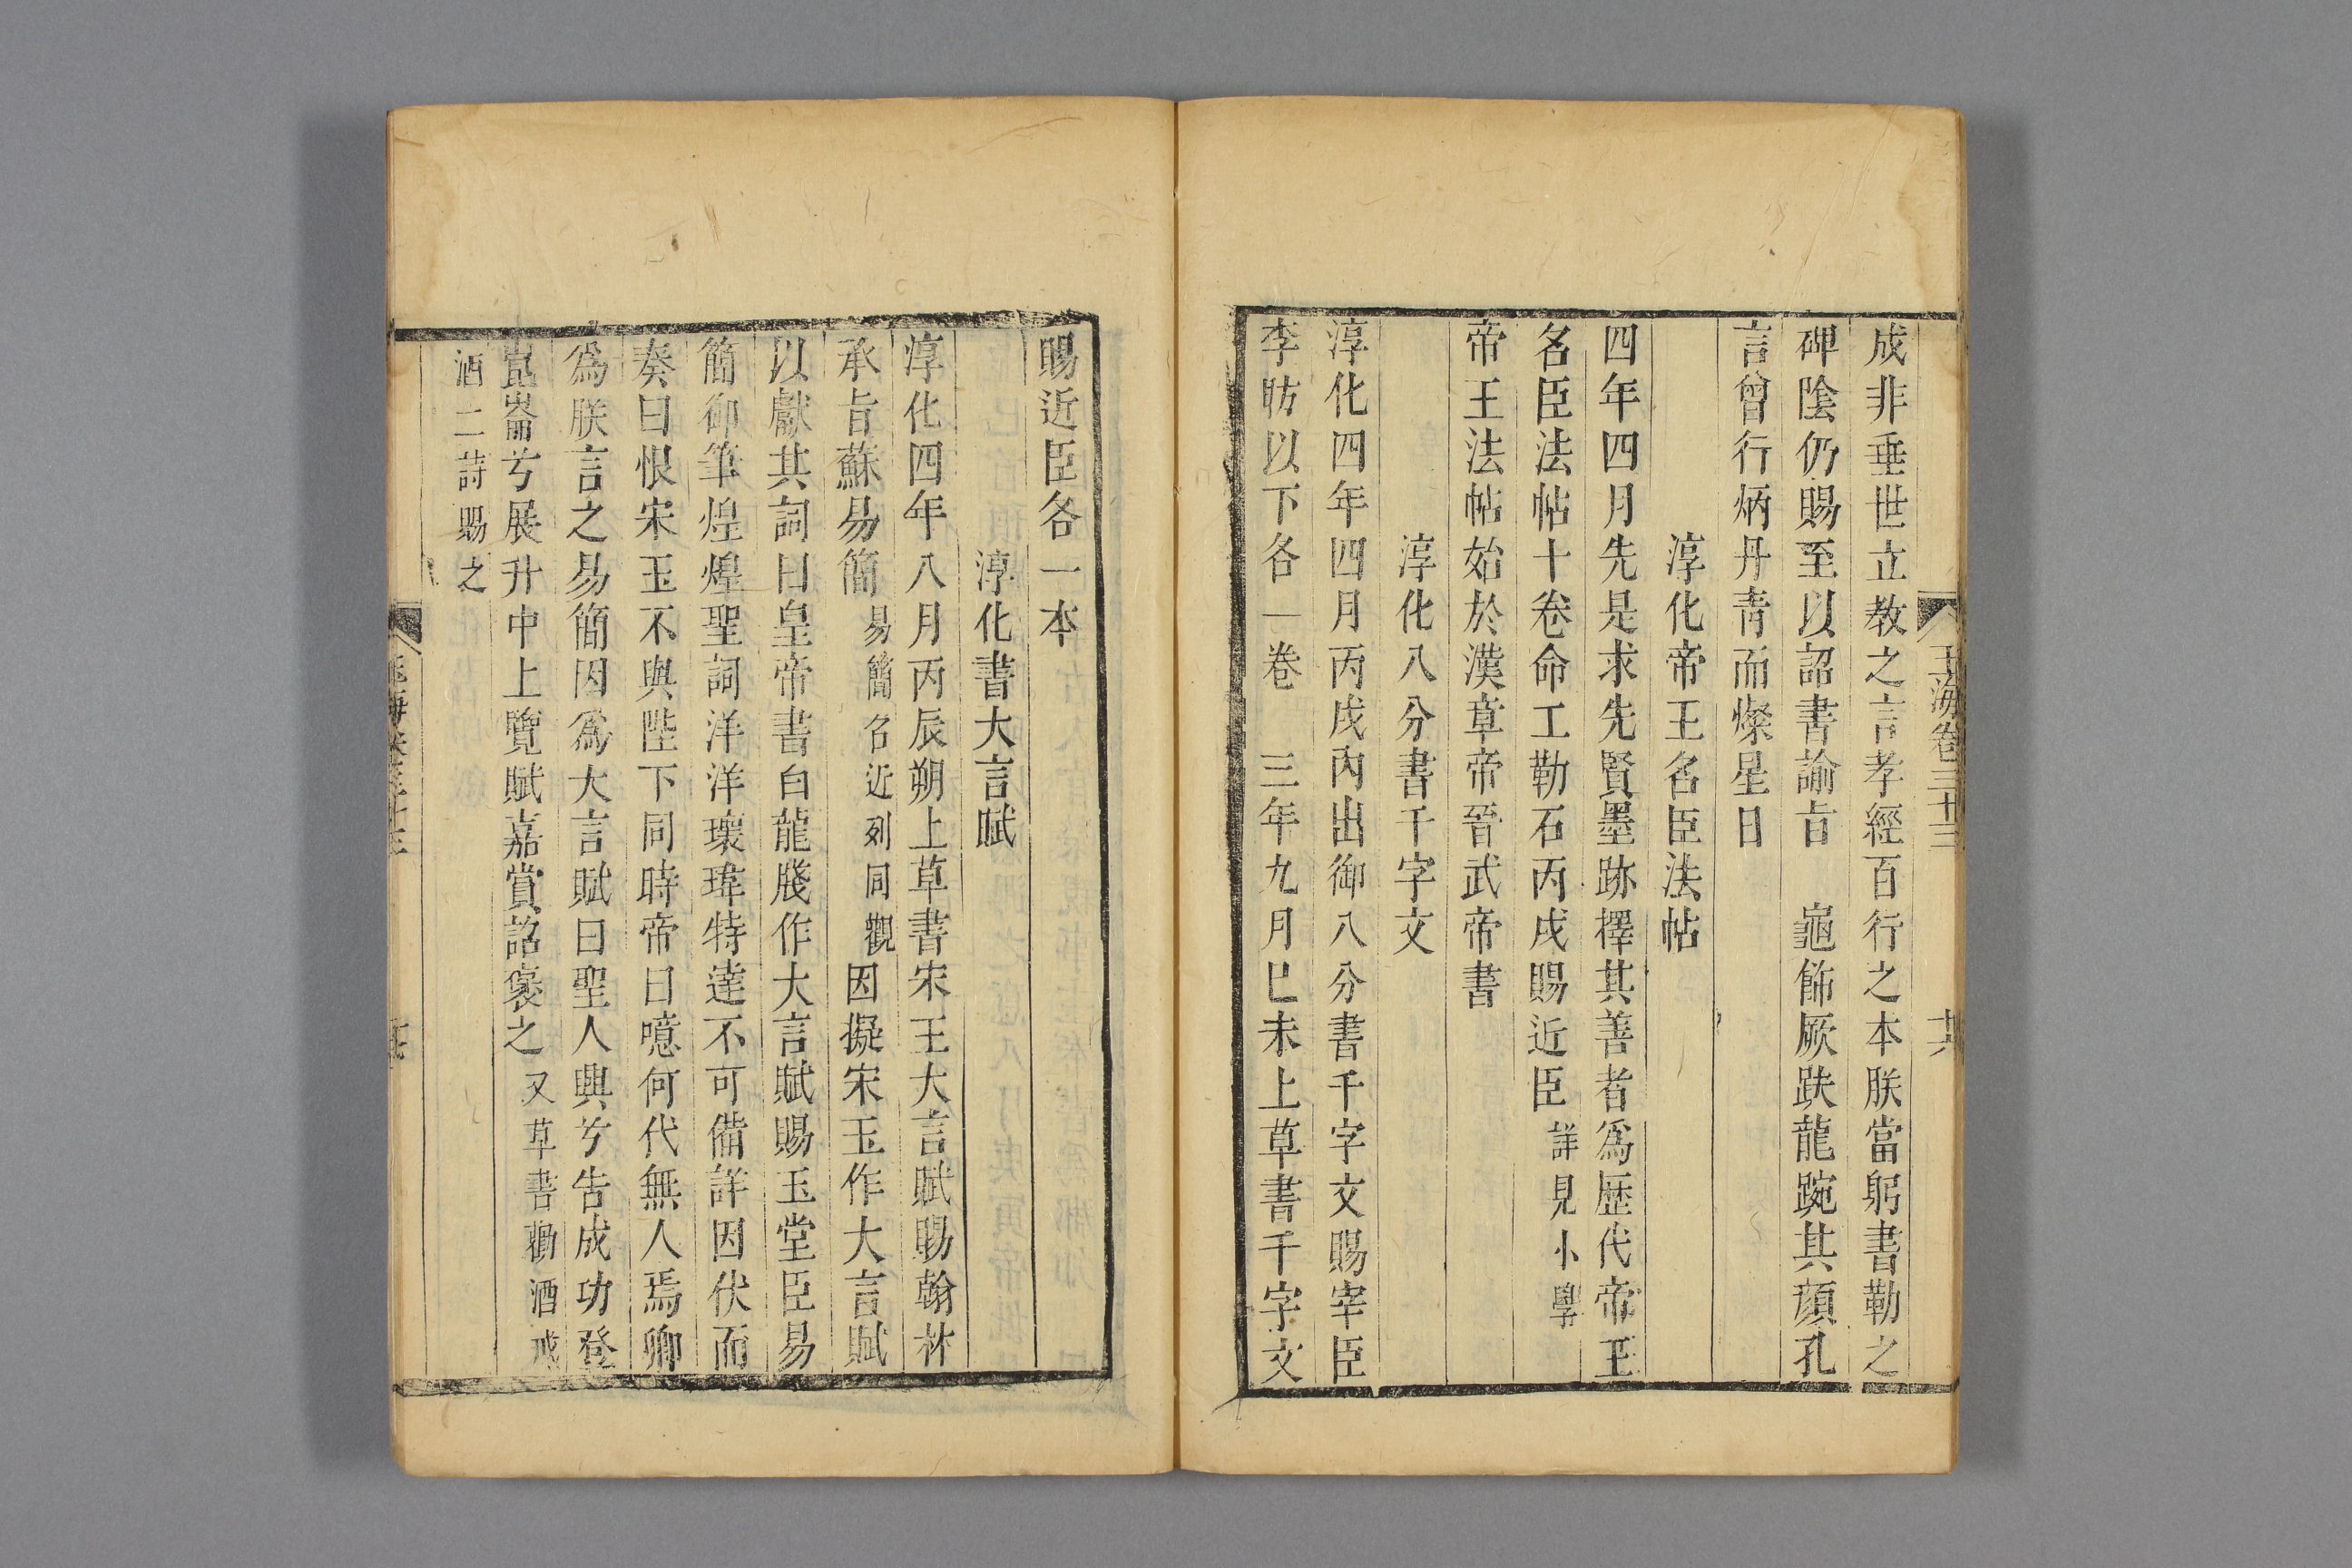 玉海卷三十三
十六
成非垂世立教之言孝經百行之本朕當躬書勒之
碑陰仍賜至以詔書諭旨　龜飾厥趺龍踠其顏孔
言曾行炳丹青而燦星日
淳化帝王名臣法帖
四年四月先是求先賢墨跡擇其善者爲歷代帝王
名臣法帖十卷命工勒石丙戌賜近臣詳見小學
帝王法帖始於漢章帝晉武帝書
淳化八分書千字文
淳化四年四月丙戌內出御八分書千字文賜宰臣
李昉以下各一卷　三年九月巳未上草書千字文
賜近臣各一本
淳化書大言賦
淳化四年八月丙辰朔上草書宋王大言賦賜翰林
承旨蘇易簡易簡名近列同觀因擬宋玉作大言賦
以獻其詞曰皇帝書白龍牋作大言賦賜玉堂臣易
簡御筆煌煌聖詞洋洋瓌瑋特達不可備詳因伏而
奏曰恨宋玉不與陛下同時帝曰噫何代無人焉卿
爲朕言之易簡因爲大言賦曰聖人興兮告成功登
崑崙兮展升中上覽賦嘉賞詔褒之又草書勸酒戒
酒二詩賜之